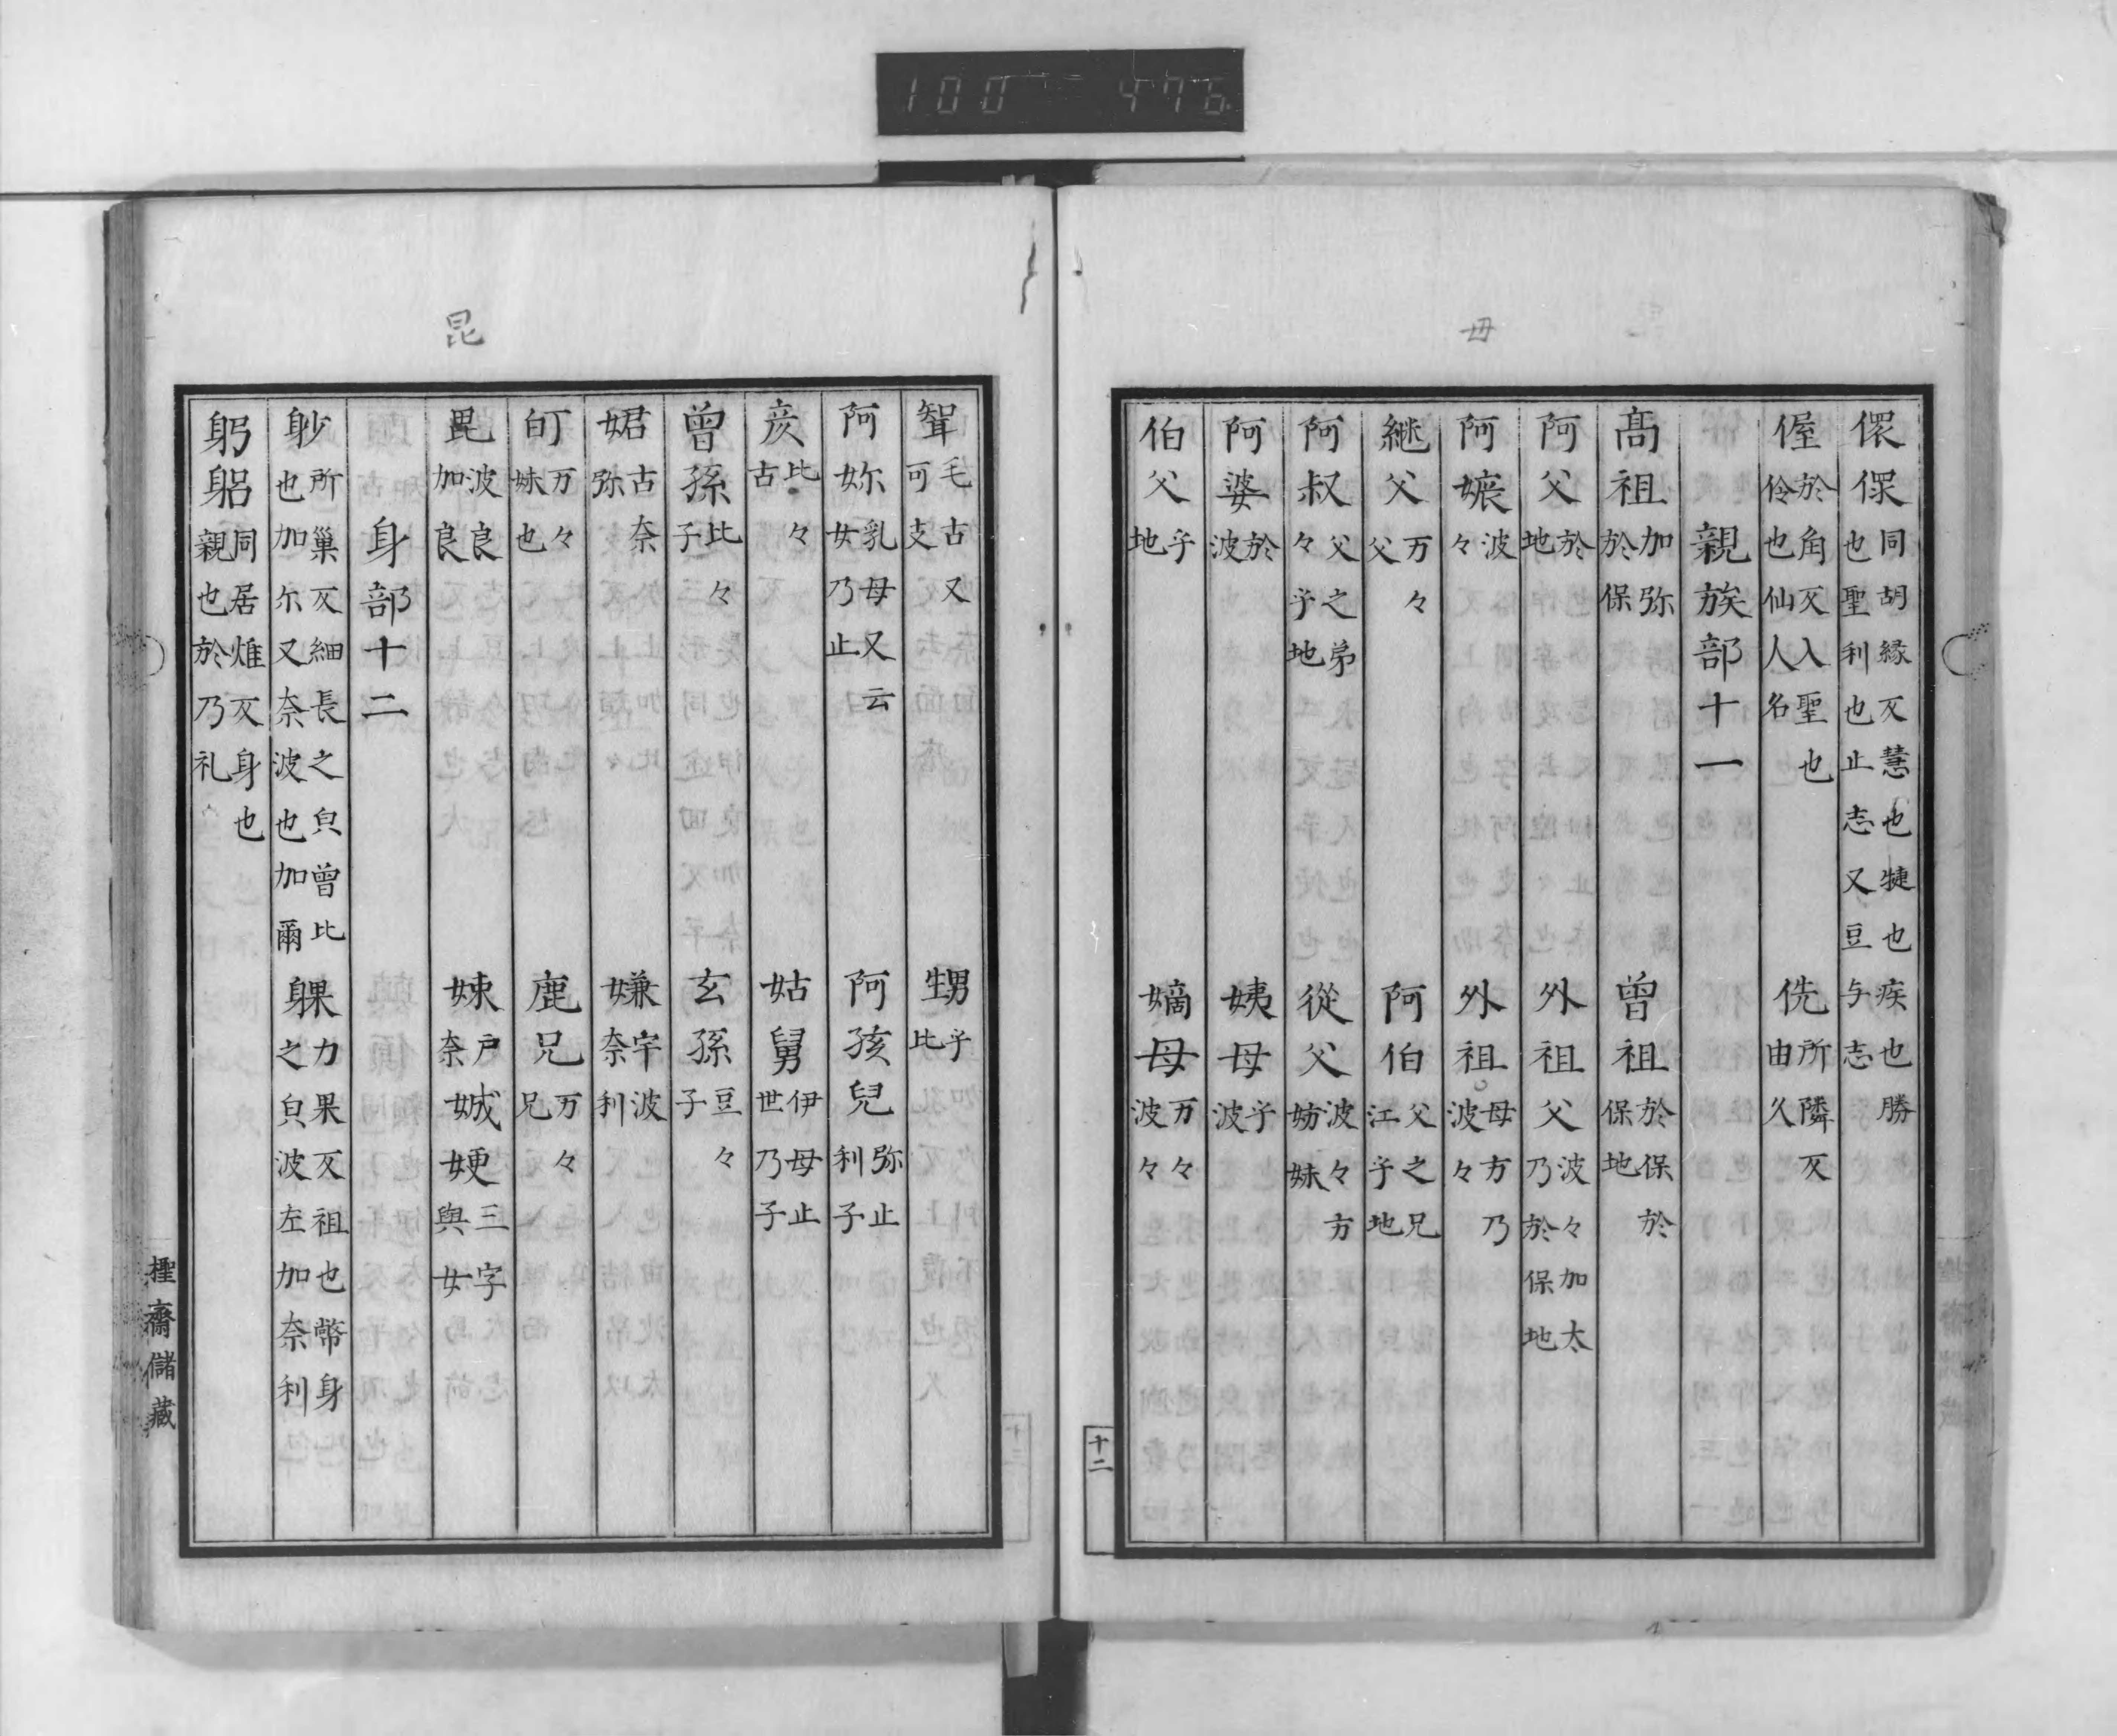 100 476
母
儇㒒同胡縁反慧也㨗也疾也勝也聖利也止志又豆与志
偓於角反入聖也伶也仙人名 侁所隣反由久
親族部十一
髙祖加弥於保 曽祖於保於保地
阿父於地 外祖父波々加太乃於保地
阿嫲波々 外祖母方乃波々
継父万々父 阿伯父之兄江乎地
阿叔父之弟々乎地 從父波々方妨妹
阿婆於波 姨母乎波
伯父乎地 嫡母万々波々
十二
昆
聟毛古又可支 甥乎比
阿妳乳母又云女乃止 阿孩兒弥止利子
彦比々古 姑舅伊母止世乃子
曽孫比々子 玄孫豆々子
𡜍古奈弥 嫌宇波奈利
㽵万々妹也 鹿兄万々兄
毘波良加良 娕戸奈娍㛐三字與女
身部十二
䠂所巢反細長之皃曽比也加尓又奈波也加爾 躶力果反祖也幣身之皃波左加奈利
躬躳同居烽反身也親也於乃礼
櫁齋儲藏